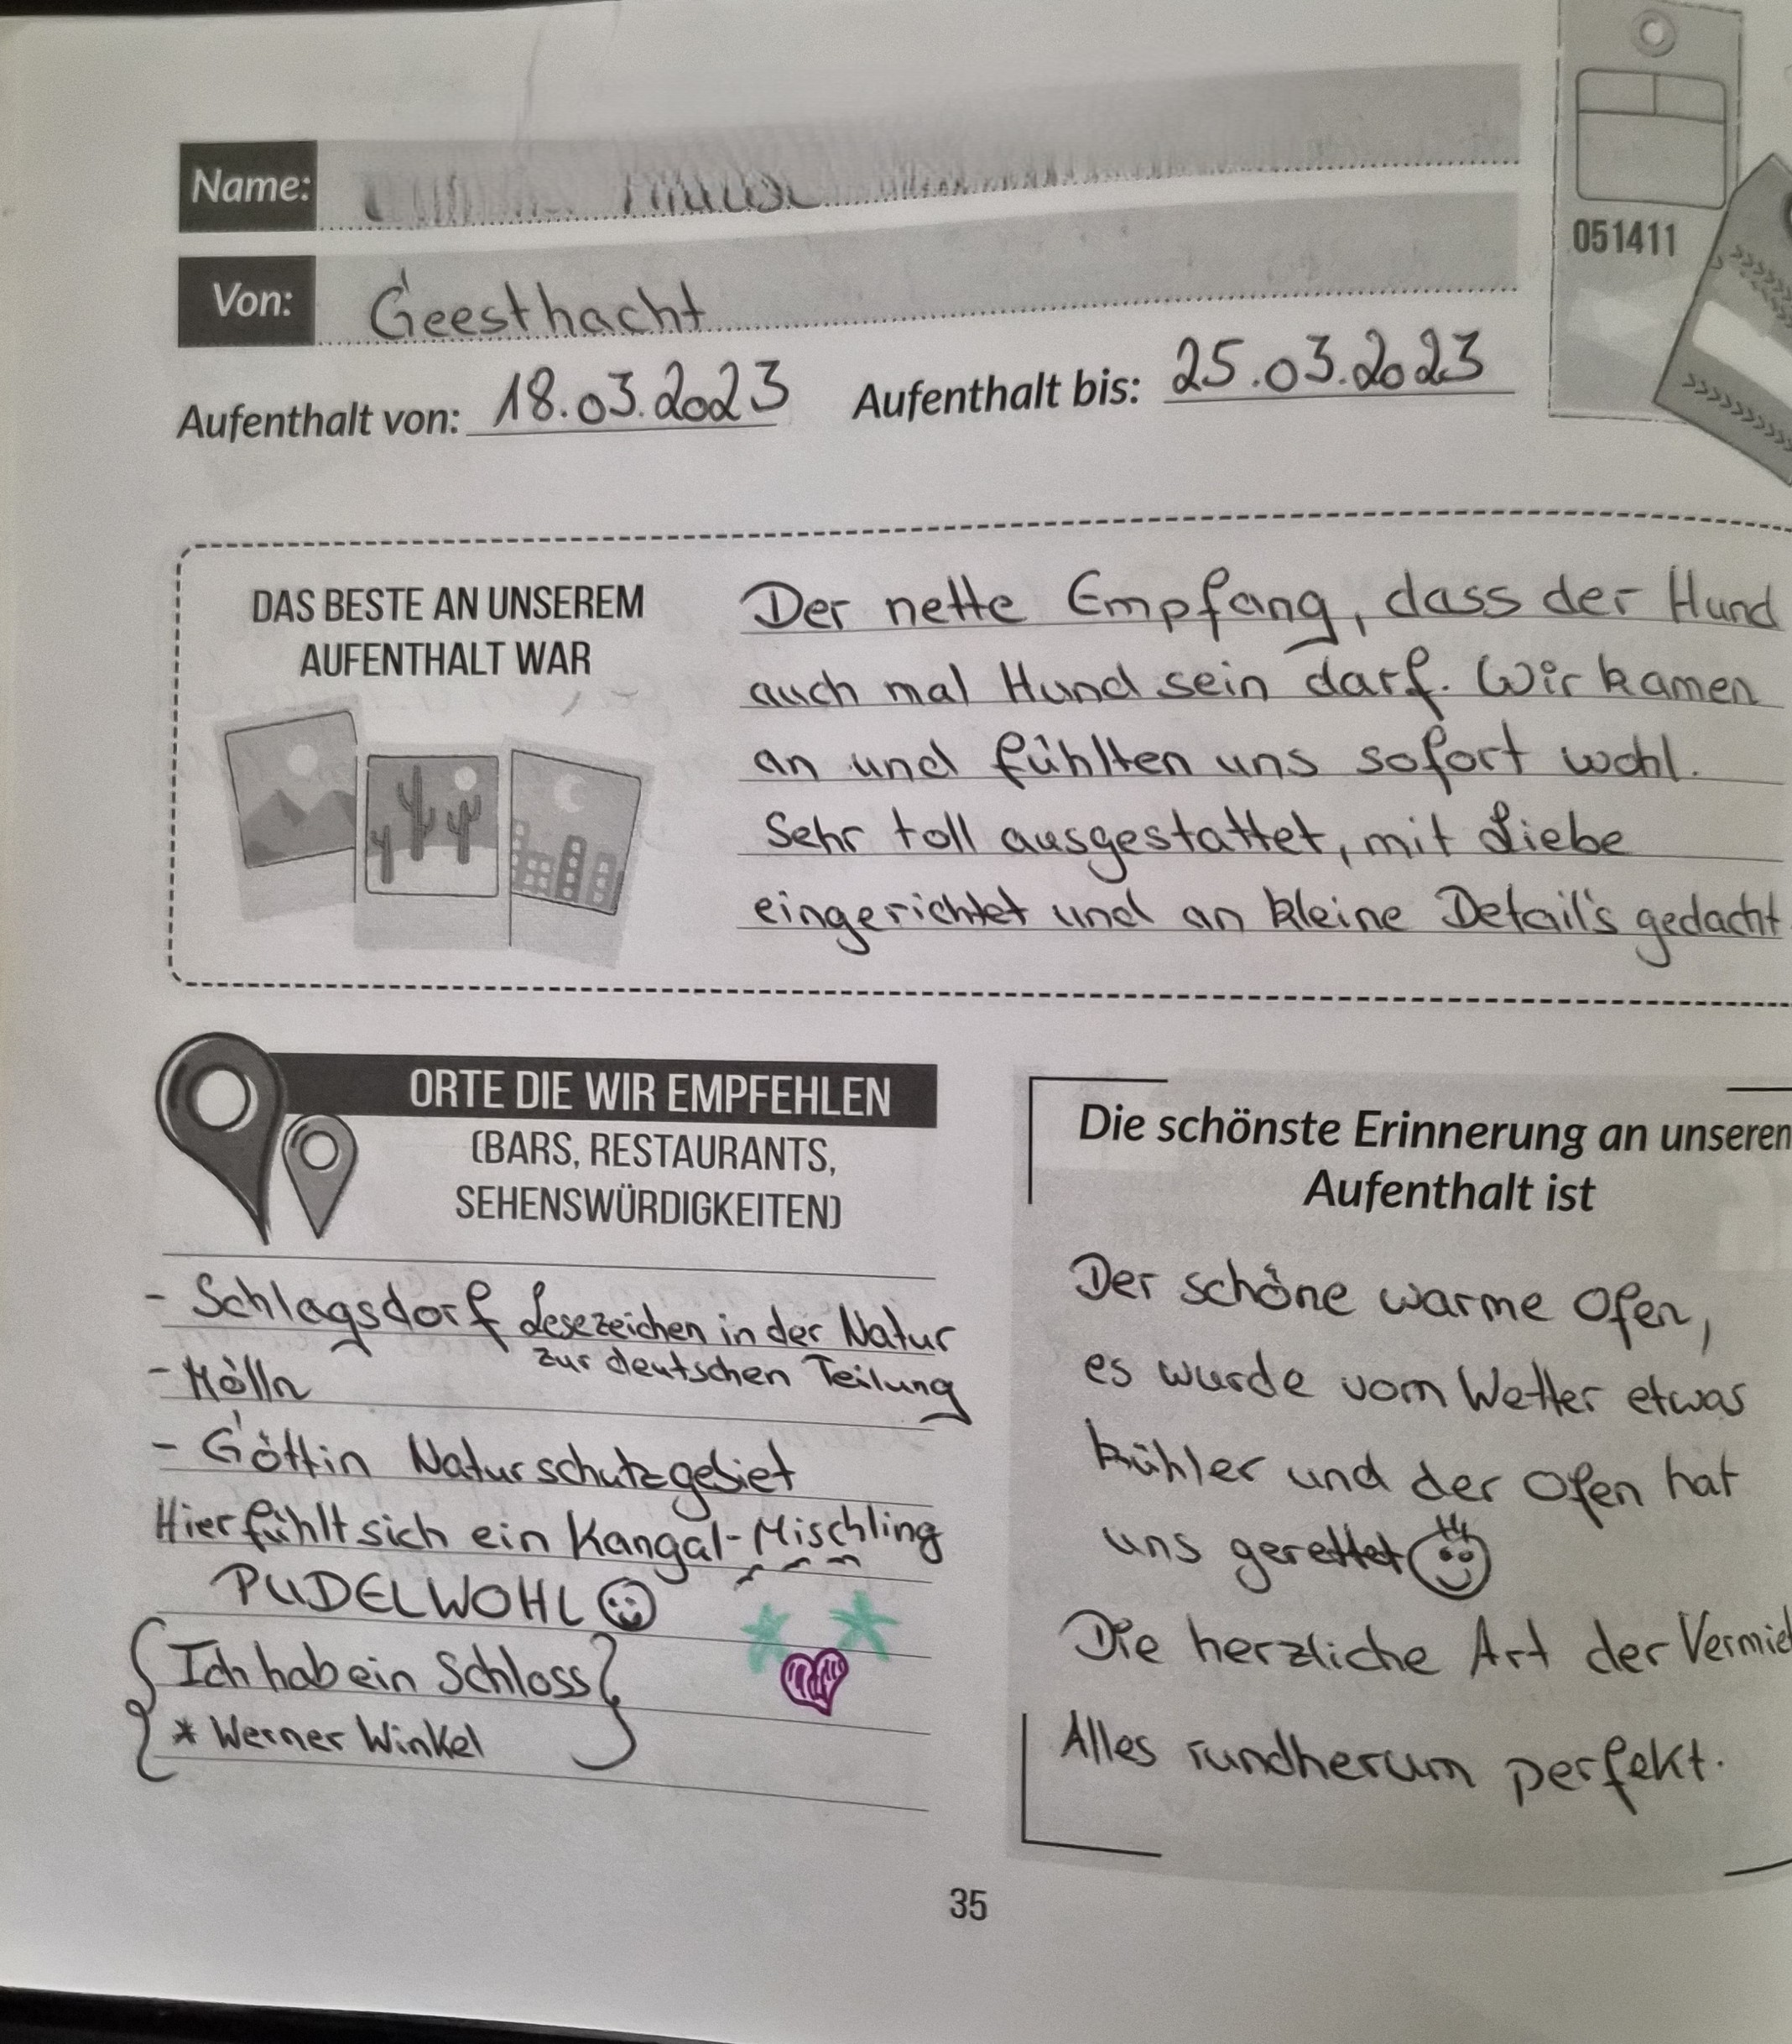 Name:
Von: Geesthacht
051411
Aufenthalt von: 18.03.2023 Aufenthalt bis: 25.03.2023
DAS BESTE AN UNSEREM
AUFENTHALT WAR
Der nette Empfang, dass der Hund
auch mal Hund sein darf. Wir kamen
an und fühlten uns sofort wohl.
Sehr toll ausgestattet, mit Liebe
eingerichtet und an kleine Detail's gedacht
ORTE DIE WIR EMPFEHLEN
(BARS, RESTAURANTS,
SEHENSWÜRDIGKEITEN)
- Schlagsdorf Lesezeichen in der Natur
zur deutschen Teilung
- Mölln
- Göttin Naturschutzgebiet
Hier fühlt sich ein Kangal-Mischling
PUDELWOHL
Ich hab ein Schloss
* Werner Winkel
Die schönste Erinnerung an unseren
Aufenthalt ist
Der schöne warme Ofen,
es wurde vom Wetter etwas
kühler und der Ofen hat
uns gerettet
Die herzliche Art der Vermie
Alles rundherum perfekt.
35